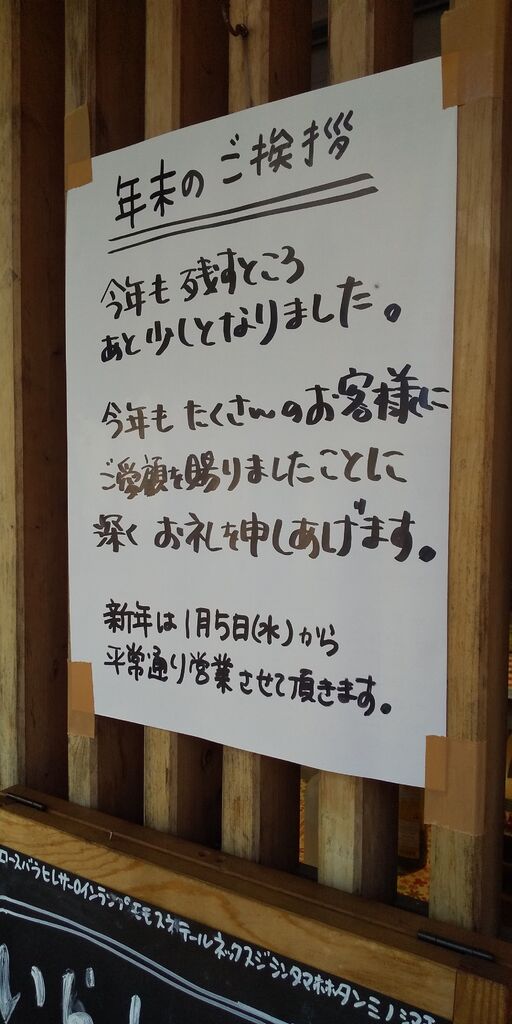 年末のご挨拶
今年も残すところ
あと少しとなりました。
今年もたくさんのお客様に
ご愛顧を賜りましたことに
深くお礼を申しあげます。
新年は1月5日(水)から
平常通り営業させて頂きます。
ロースバラヒレサーロインランプモモスネテールネックスジシンタマホホタンミノ